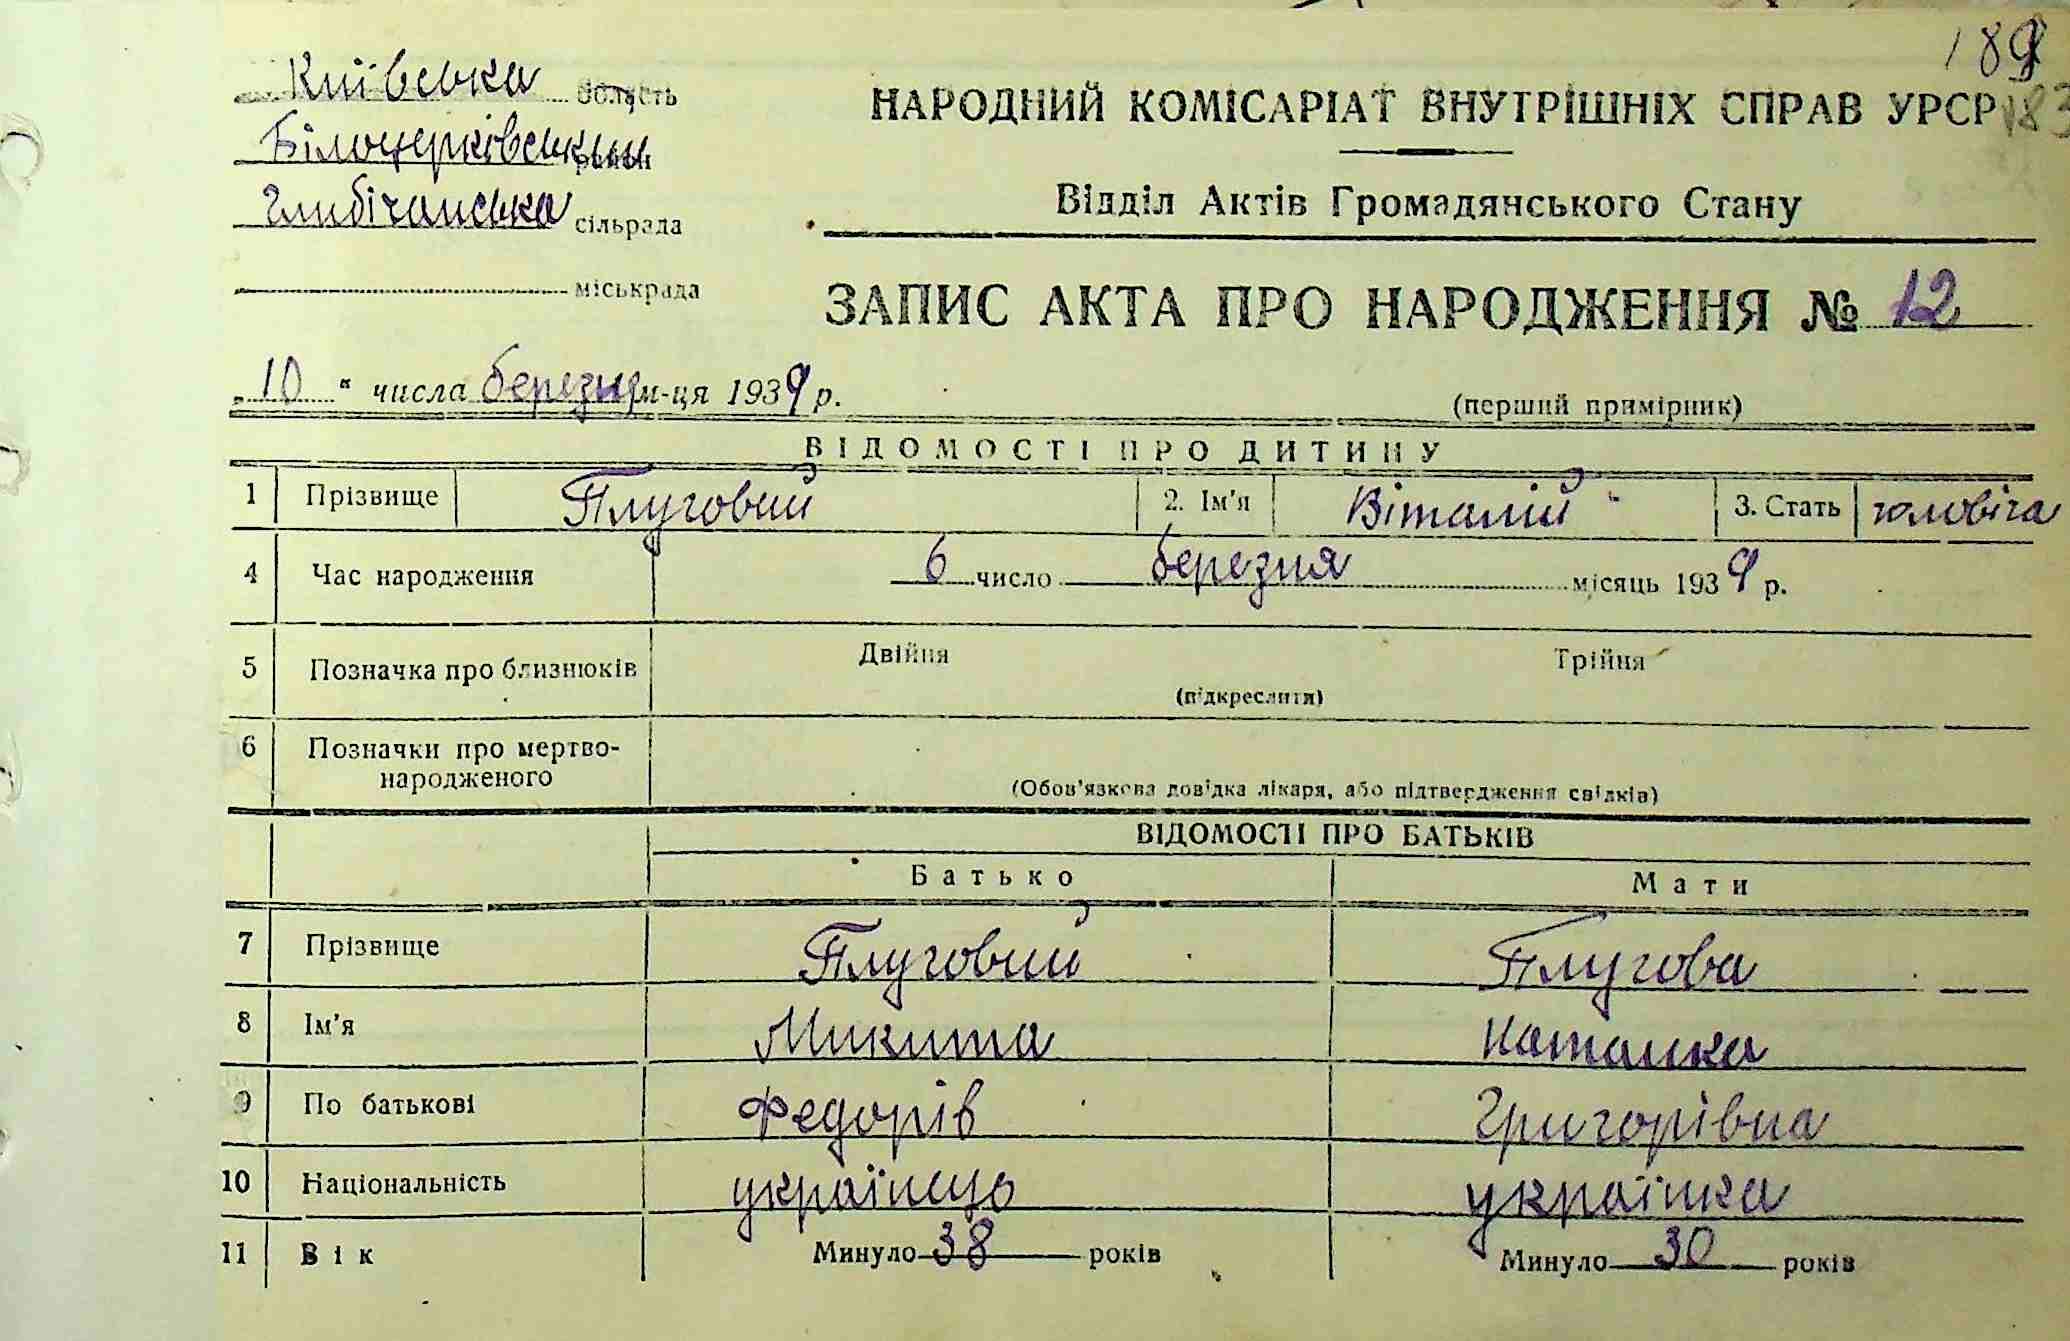 189
183
Київська область
Білоцерківський район
Глибічанська сільрада
міськрада
НАРОДНИЙ КОМІСАРІАТ ВНУТРІШНІХ СПРАВ УРСР
Відділ Актів Громадянського Стану
ЗАПИС АКТА ПРО НАРОДЖЕННЯ № 12
„10“ числа березня м-ця 1939 р.
(перший примірник)
ВІДОМОСТІ ПРО ДИТИНУ
1 Прізвище Плуговий 2. Ім'я Віталій 3. Стать чоловіча
4 Час народження 6 число березня місяць 1939 р.
5 Позначка про близнюків Двійня Трійня
(підкреслити)
6 Позначки про мертво-
народженого
(Обов'язкова довідка лікаря, або підтвердження свідків)
ВІДОМОСТІ ПРО БАТЬКІВ
Батько Мати
7 Прізвище Плуговий Плугова
8 Ім'я Микита Наталка
9 По батькові Федорів Григорівна
10 Національність українець українка
11 Вік Минуло 38 років Минуло 30 років